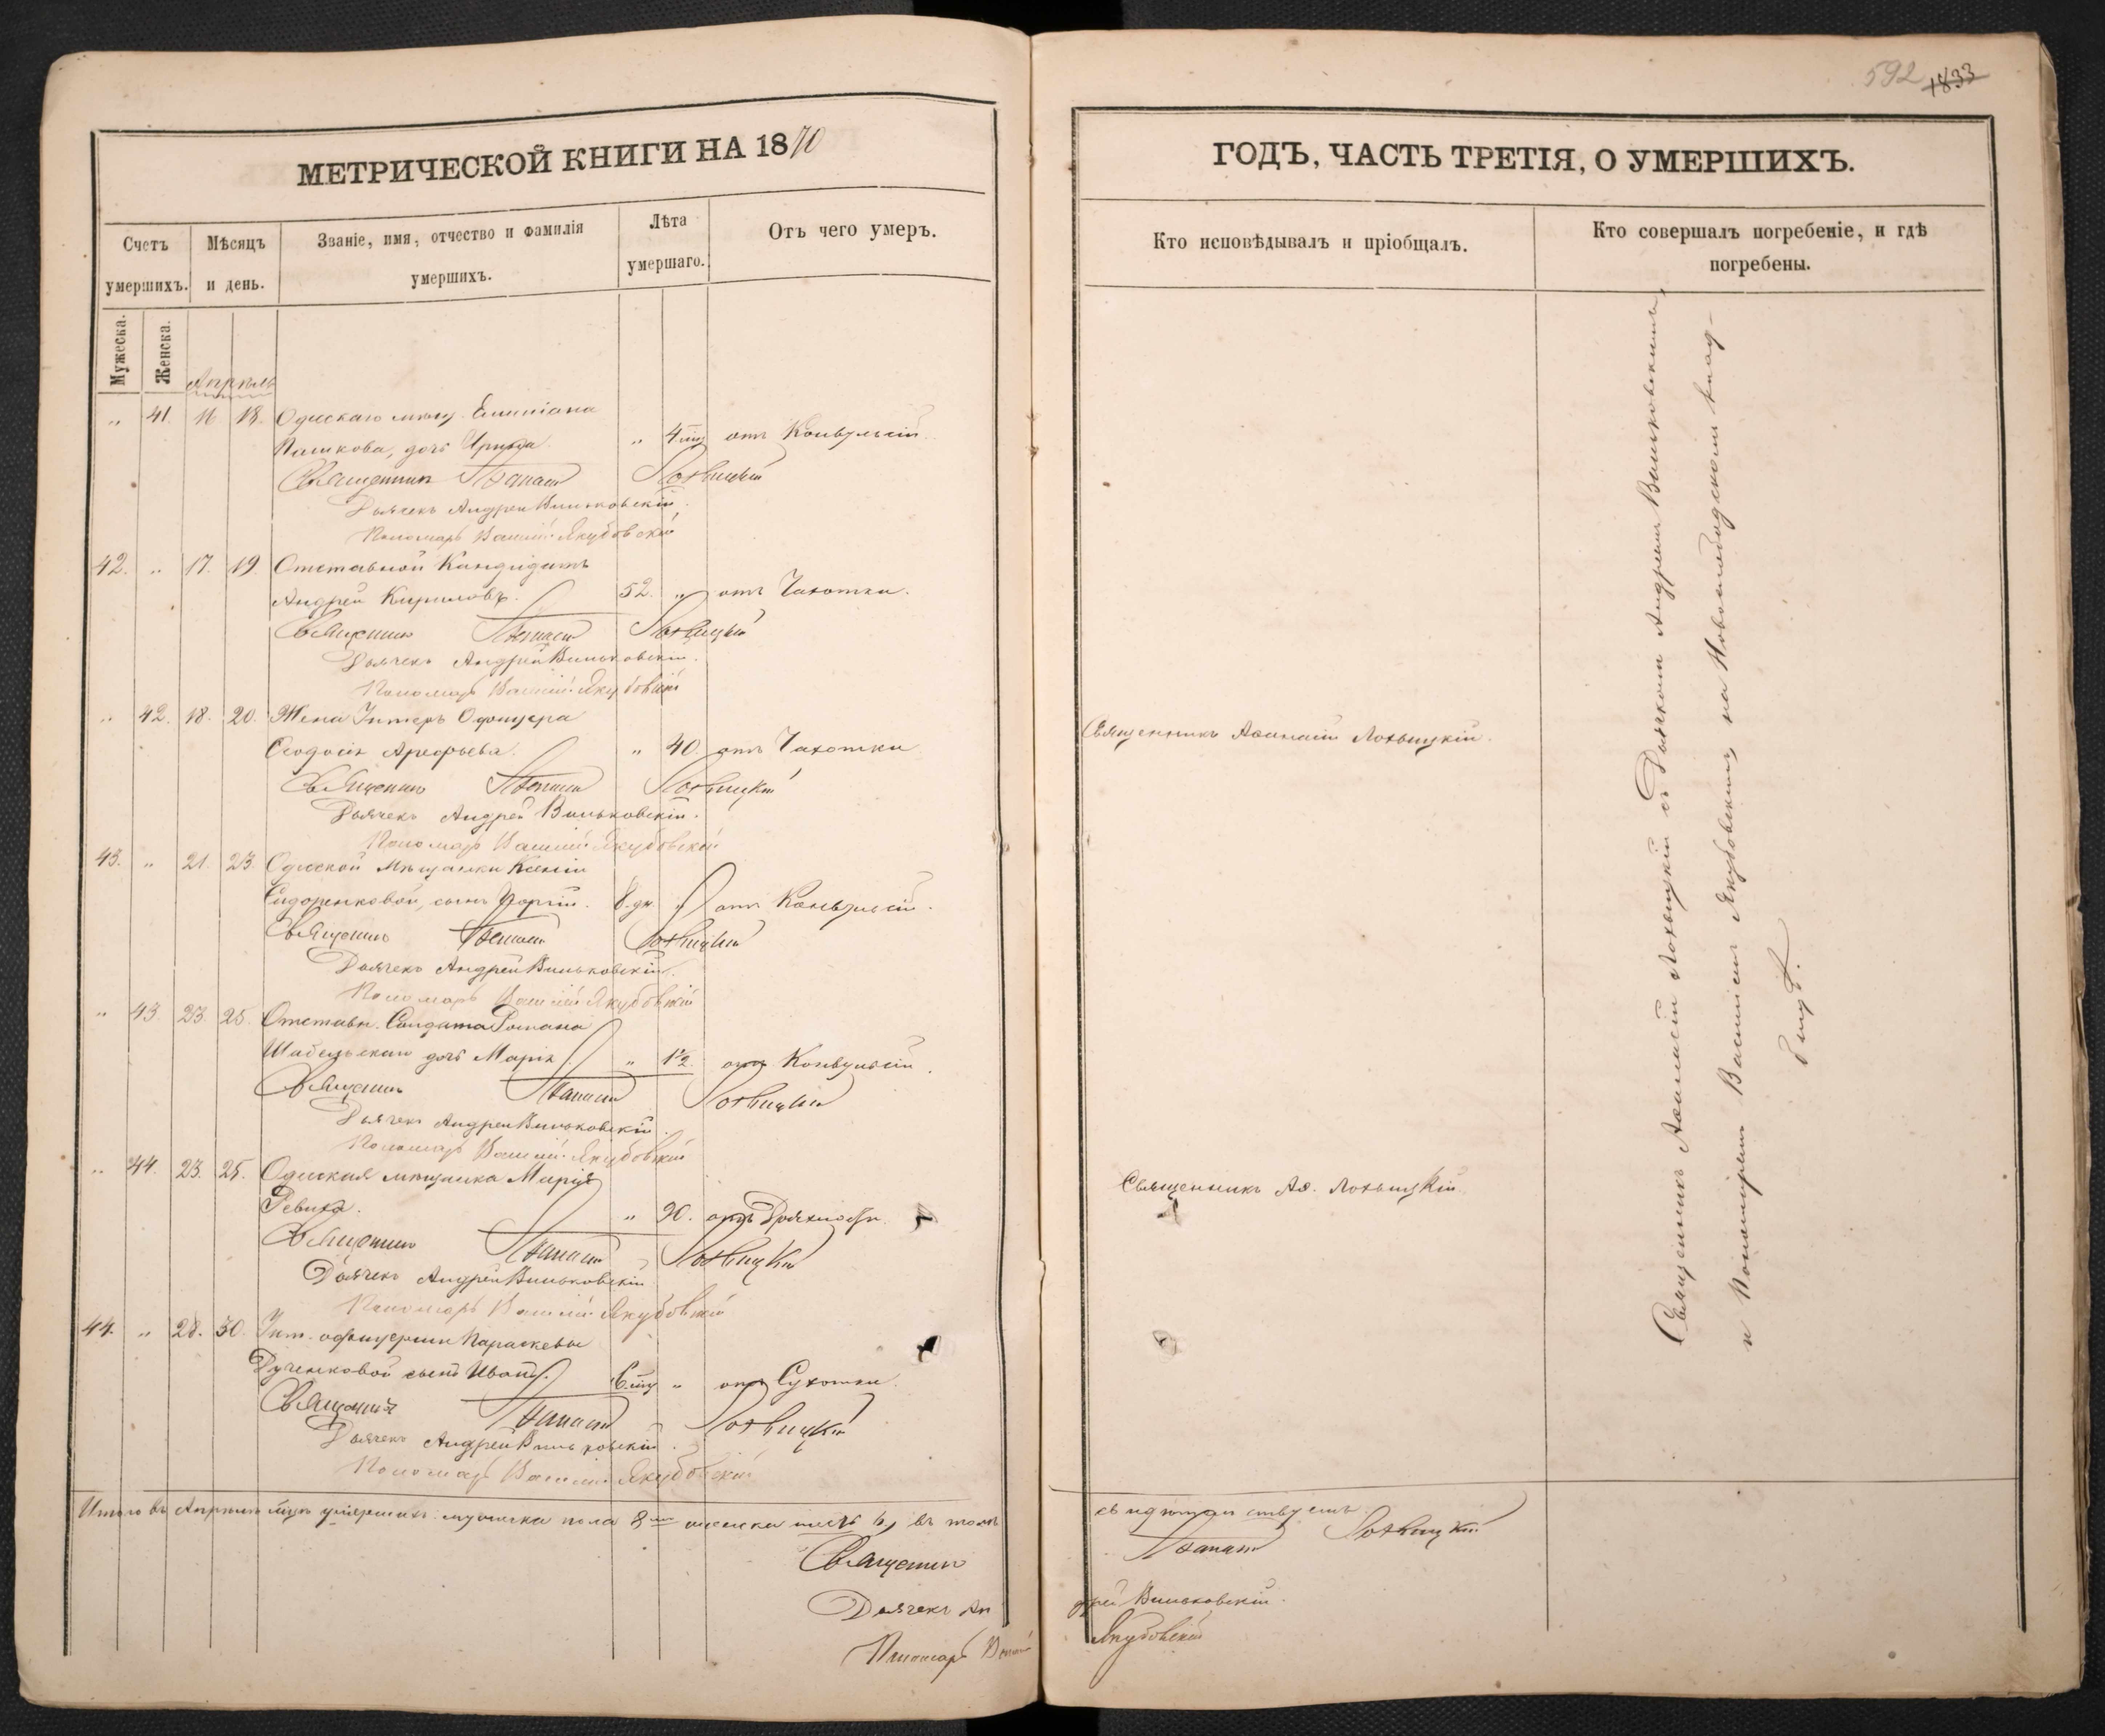 МЕТРИЧЕСКОЙ КНИГИ НА 1870
Счетъ умершихъ.
Мѣсяцъ и день.
Званіе, имя, отчество и фамилія умершихъ.
Лѣта умершаго.
Отъ чего умеръ.
Мужеска.
Женска.
Апрѣль
„ 41. 16 18. Одескаго мѣщ. Емиліана
Пашкова, дочь Ирина. „ 4 мц отъ Конвульсій.
Священникъ Афанасій Лохвицкій
Дьячекъ Андрей Виньковскій.
Пономарь Василій Якубовскій
42. „ 17. 19. Отставной Кандидатъ
Андрей Кириловъ. 52. „ отъ Чахотки.
Священникъ Афанасій Лохвицкій
Дьячекъ Андрей Виньковскій.
Пономарь Василій Якубовскій
„ 42. 18. 20. Жена Унтеръ Офицера
Ѳеодосія Арефьева. „ 40. отъ Чахотки
Священникъ Афанасій Лохвицкій
Дьячекъ Андрей Виньковскій.
Пономарь Василій Якубовскій
43. „ 21. 23. Одесской Мѣщанки Ксеніи
Сидоренковой, сынъ Георгій. 8 дн. „ отъ Конвульсій.
Священникъ Афанасій Лохвицкій
Дьячекъ Андрей Виньковскій.
Пономарь Василій Якубовскій
„ 43. 23. 25. Отставн. Солдата Романа
дочь Марія „ 1½ отъ Конвульсій.
Священникъ Афанасій Лохвицкій
Дьячекъ Андрей Виньковскій.
Пономарь Василій Якубовскій
„ 44. 23. 25. Одеская мѣщанка Марія
Ревиха. „ 90. отъ Дряхлости.
Священникъ Афанасій Лохвицкій
Дьячекъ Андрей Виньковскій
Пономарь Василій Якубовскій
44. „ 28. 30. Унт. офицерши Параскевы
сынъ Иванъ. 6 мц „ отъ Сухотки.
Священникъ Афанасій Лохвицкій
Дьячекъ Андрей Виньковскій.
Пономарь Василій Якубовскій
Итого въ Апрѣлѣ мцѣ умершихъ: мужеска пола 8 женска шесть 6, въ томъ
Священникъ
Дьячекъ Ан
Пономарь Василій
592 1833
ГОДЪ, ЧАСТЬ ТРЕТІЯ, О УМЕРШИХЪ.
Кто исповѣдывалъ и пріобщалъ.
Кто совершалъ погребеніе, и гдѣ погребены.
Священникъ Аѳанасій Лохвицкій.
Священникъ Аѳ. Лохвицкій.
Священникъ Аѳанасій Лохвицкій съ Дьячкомъ Андреемъ Виньковскимъ,
и Пономаремъ Василіемъ Якубовскимъ, на Новослободскомъ клад-
бищѣ.
свидѣтельствуемъ.
Афанасій Лохвицкій
дрей Виньковскій.
Якубовскій